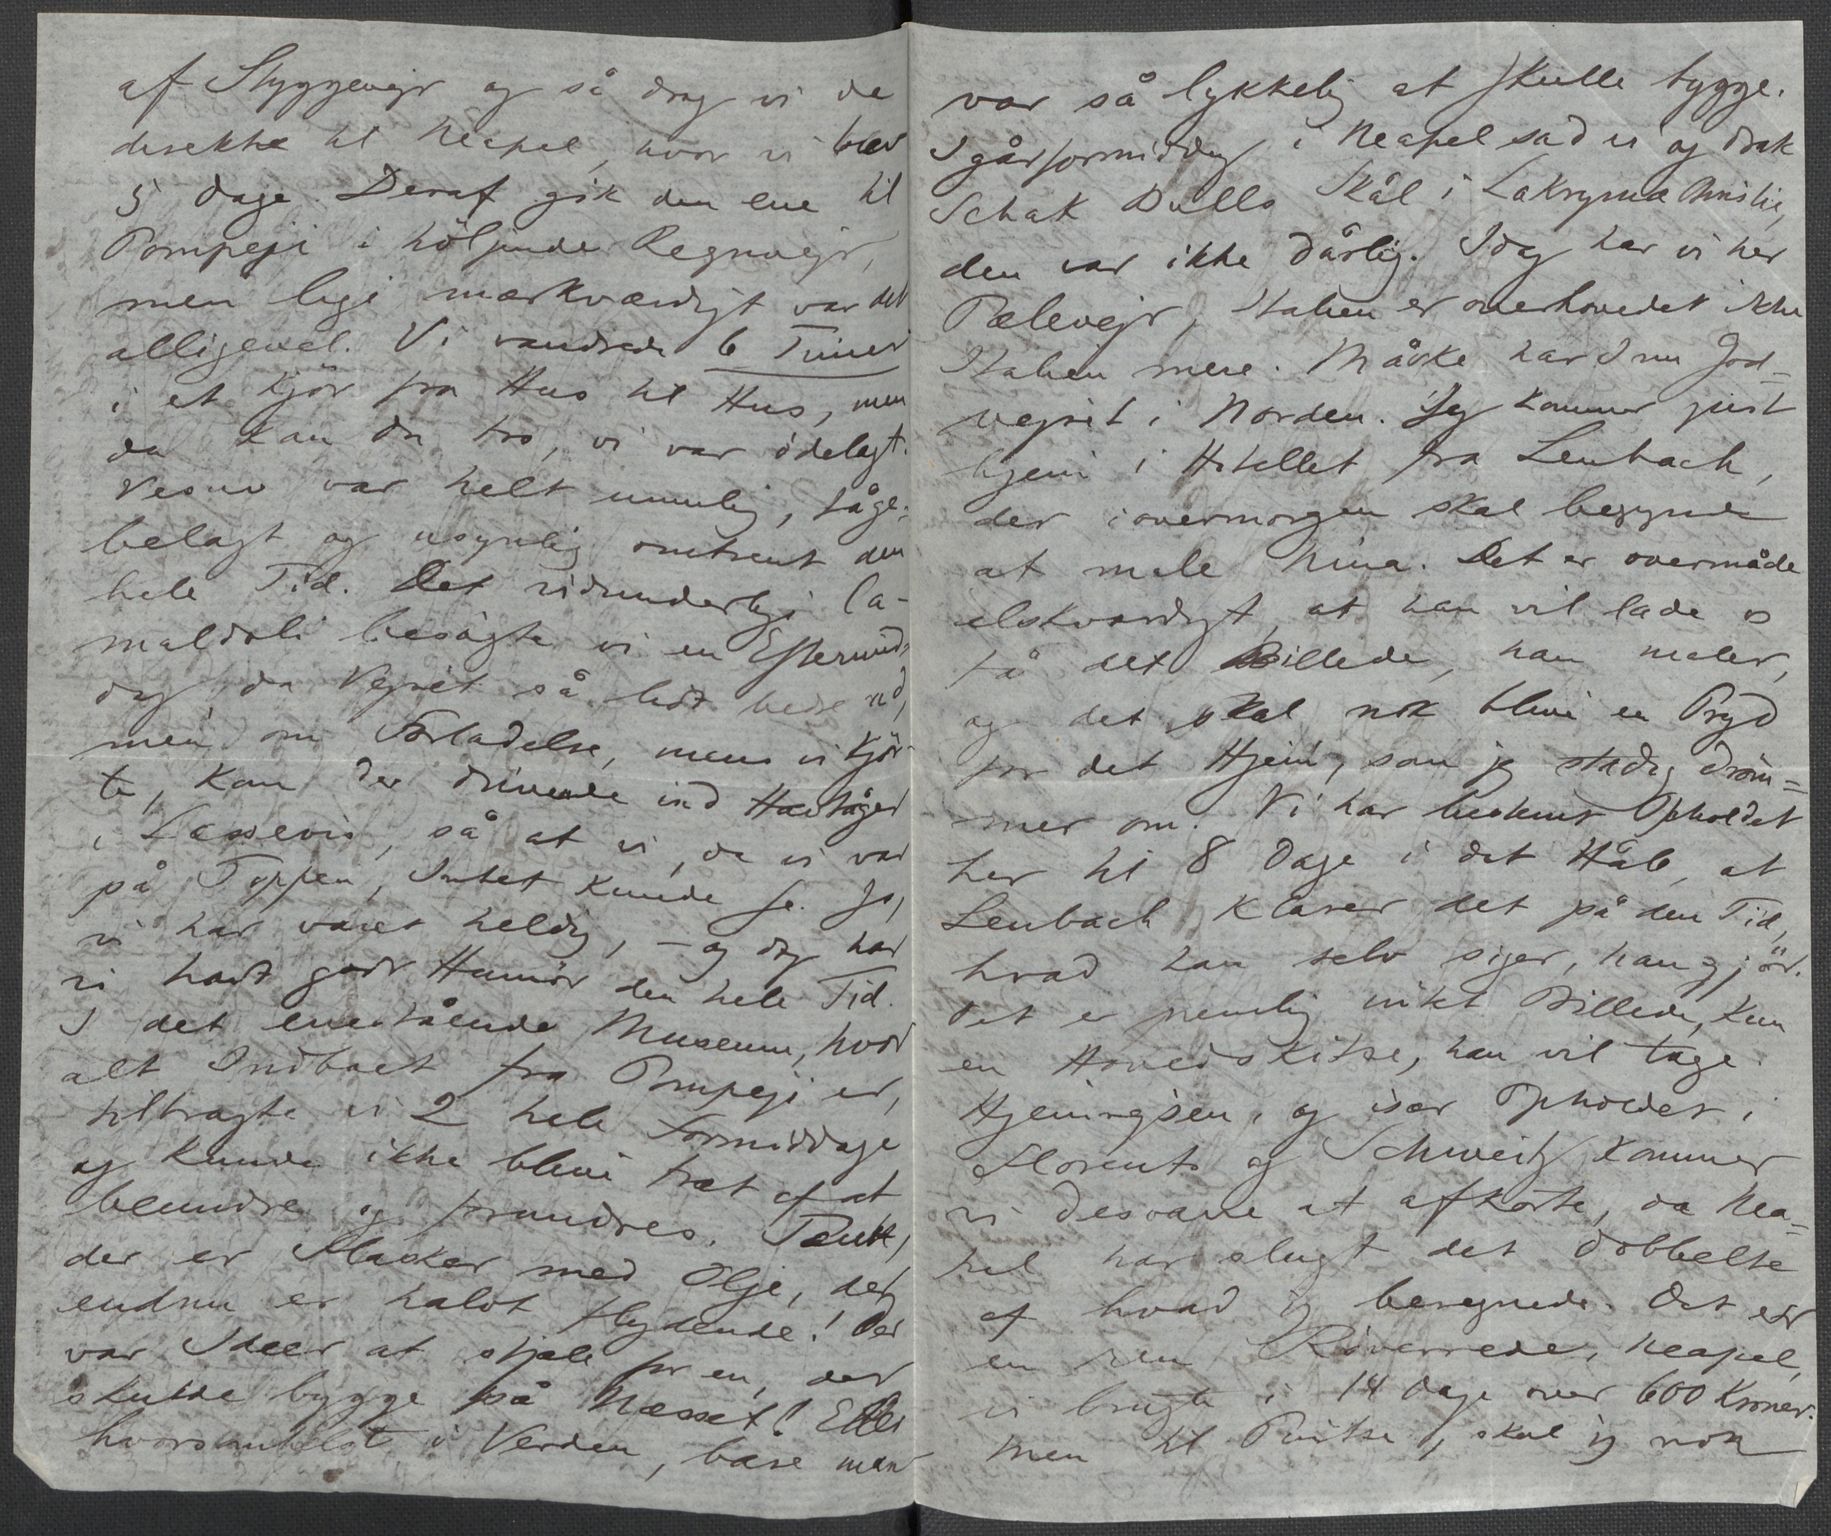 af Styggevejr og så drog vi da
direkte til Neapel, hvor vi blev
5 Dage. Deraf gik den ene til
Pompeji i höljende Regnvejr,
men lige mærkværdigt var det
alligevel. Vi vandrede 6 Timer
i et Kjör fra Hus til Hus, men
da kan du tro, vi var ödelagt.
Vesuv var helt umulig, tåge-
belagt og usynlig omtrent den
hele Tid. Det vidunderlige Ca-
maldoli besögte vi en Eftermid-
dag, da Vejret så lidt bedre ud,
men, om Forladelse, mens vi kjör-
te, kom der drivende ind Havtåger
i Læssevis, så at vi, da vi var
på Toppen, Intet kunde se. Jo,
vi har været heldig, – og dog har
vi havt godt Humör den hele Tid.
I det enestående Museum, hvor
alt Indboet fra Pompeji er,
tilbragte vi 2 hele Formiddage
og kunde ikke blive træt af at
beundre og forundres. Tænk,
der er Flasker med Olje, der
endnu er halvt flydende! Der
var Ideer at stjæle for en, der
skulde bygge på Næsset! Eller
hvorsomhelst i Verden, bare man
var så lykkelig at skulle bygge.
Igårformiddag i Neapel sad vi og drak
Schak Bulls Skål i Lakrymæ Christi,
den var ikke dårlig. Idag har vi her
Pælevejr, Italien er overhovedet ikke
Italien mere. Måske har I nu God-
vejret i Norden. Jeg kommer just
hjem i Hotellet fra Lenbach,
der iovermorgen skal begynde
at male Nina. Det er overmåde
elskværdigt, at han vil lade os
få det Billede, han maler,
og det skal nok blive en Pryd
for det Hjem, som jeg stadig dröm-
mer om. Vi har bestemt Opholdet
her til 8 Dage i det Håb, at
Lenbach klarer det på den Tid,
hvad han selv siger, han gjör.
Det er nemlig intet Billede, kun
en Hovedskitse, han vil tage.
Hjemrejsen, og især Opholdet i
Florents og Schweitz kommer
vi desværre at afkorte, da Nea-
pel har slugt det dobbelte
af hvad jeg beregnede. Det er
en ren Röverrede, Neapel,
vi brugte i 14 Dage over 600 Kroner.
Men til skal jeg nok